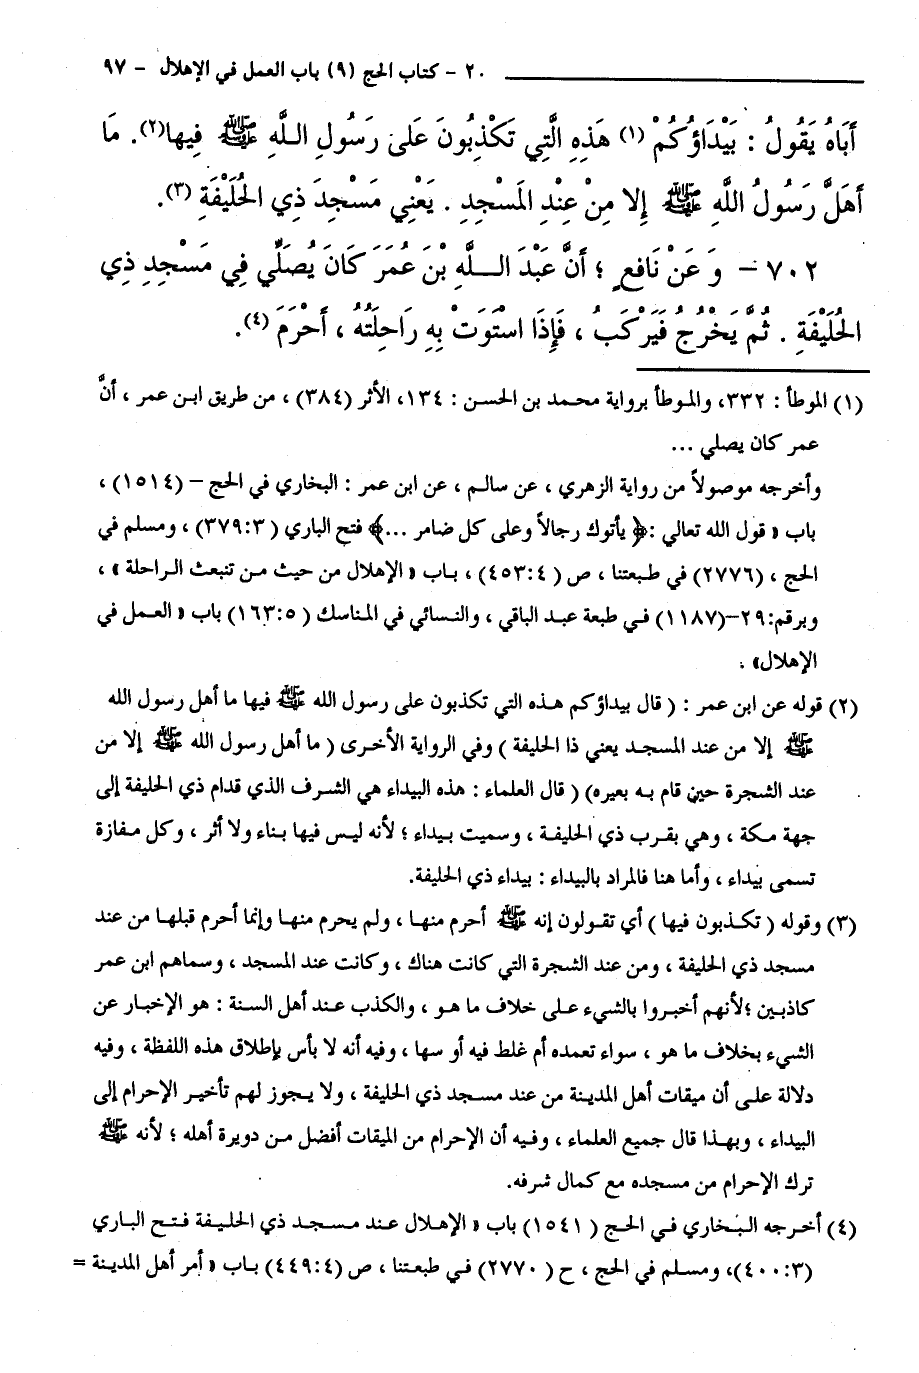 ٢٠ - كتاب الحج (٩) باب العمل في الإهلال - ٩٧
أَبَاهُ يَقُولُ : بَيْدَاؤُكُمْ (١) هَذِهِ الَّتِي تَكْذِبُونَ عَلَى رَسُولِ اللَّهِ ﷺ فِيهَا(٢). مَا
أَهَلَّ رَسُولُ اللَّهِ ﷺ إِلا مِنْ عِنْدِ الْمَسْجِدِ . يَعْنِي مَسْجِدَ ذِي الْحُلَيْفَةِ (٣).
٧٠٢ - وَ عَنْ نَافِعٍ ؛ أَنَّ عَبْدَ اللَّهِ بْنَ عُمَرَ كَانَ يُصَلِّي فِي مَسْجِدِ ذِي
الْحُلَيْفَةِ . ثُمَّ يَخْرُجُ فَيَرْكَبُ ، فَإِذَا اسْتَوَتْ بِهِ رَاحِلَتُهُ ، أَحْرَمَ (٤).
(١) الموطأ : ٣٣٢، والموطأ برواية محمد بن الحسن : ١٣٤، الأثر (٣٨٤) ، من طريق ابن عمر ، أنَّ
عمر كان يصلي ...
وأخرجه موصولاً من رواية الزهري ، عن سالم ، عن ابن عمر : البخاري في الحج – (١٥١٤) ،
باب « قول الله تعالي :﴿ يأتوك رجالاً وعلى كل ضامر ...﴾ فتح الباري (٣٧٩:٣) ، ومسلم في
الحج ، (٢٧٧٦) في طبعتنا ، ص (٤٥٣:٤) ، باب « الإهلال من حيث من تنبعث الراحلة » ،
وبرقم:٢٩–(١١٨٧) في طبعة عبد الباقي ، والنسائي في المناسك (١٦٣:٥) باب « العمل في
الإهلال» .
(٢) قوله عن ابن عمر : ( قال بيداؤكم هذه التي تكذبون على رسول الله ﷺ فيها ما أهل رسول الله
ﷺ إلا من عند المسجد يعني ذا الحليفة ) وفي الرواية الأخرى ( ما أهل رسول الله ﷺ إلا من
عند الشجرة حين قام به بعيره) ( قال العلماء : هذه البيداء هي الشرف الذي قدام ذي الحليفة إلى
جهة مكة ، وهي بقرب ذي الحليفة ، وسميت بيداء ؛ لأنه ليس فيها بناء ولا أثر ، وكل مفازة
تسمى بيداء ، وأما هنا فالمراد بالبيداء : بيداء ذي الحليفة.
(٣) وقوله ( تكذبون فيها ) أي تقولون إنه ﷺ أحرم منها ، ولم يحرم منها وإنما أحرم قبلها من عند
مسجد ذي الحليفة ، ومن عند الشجرة التي كانت هناك ، وكانت عند المسجد ، وسماهم ابن عمر
كاذبين ؛لأنهم أخبروا بالشيء على خلاف ما هو ، والكذب عند أهل السنة : هو الإخبار عن
الشيء بخلاف ما هو ، سواء تعمده أم غلط فيه أو سها ، وفيه أنه لا بأس بإطلاق هذه اللفظة ، وفيه
دلالة على أن ميقات أهل المدينة من عند مسجد ذي الحليفة ، ولا يجوز لهم تأخير الإحرام إلى
البيداء ، وبهذا قال جميع العلماء ، وفيه أن الإحرام من الميقات أفضل من دويرة أهله ؛ لأنه ﷺ
ترك الإحرام من مسجده مع كمال شرفه.
(٤) أخرجه البخاري في الحج (١٥٤١) باب « الإهلال عند مسجد ذي الحليفة فتح الباري
(٤٠٠:٣)، ومسلم في الحج ، ح (٢٧٧٠) في طبعتنا ، ص (٤٤٩:٤) باب « أمر أهل المدينة =